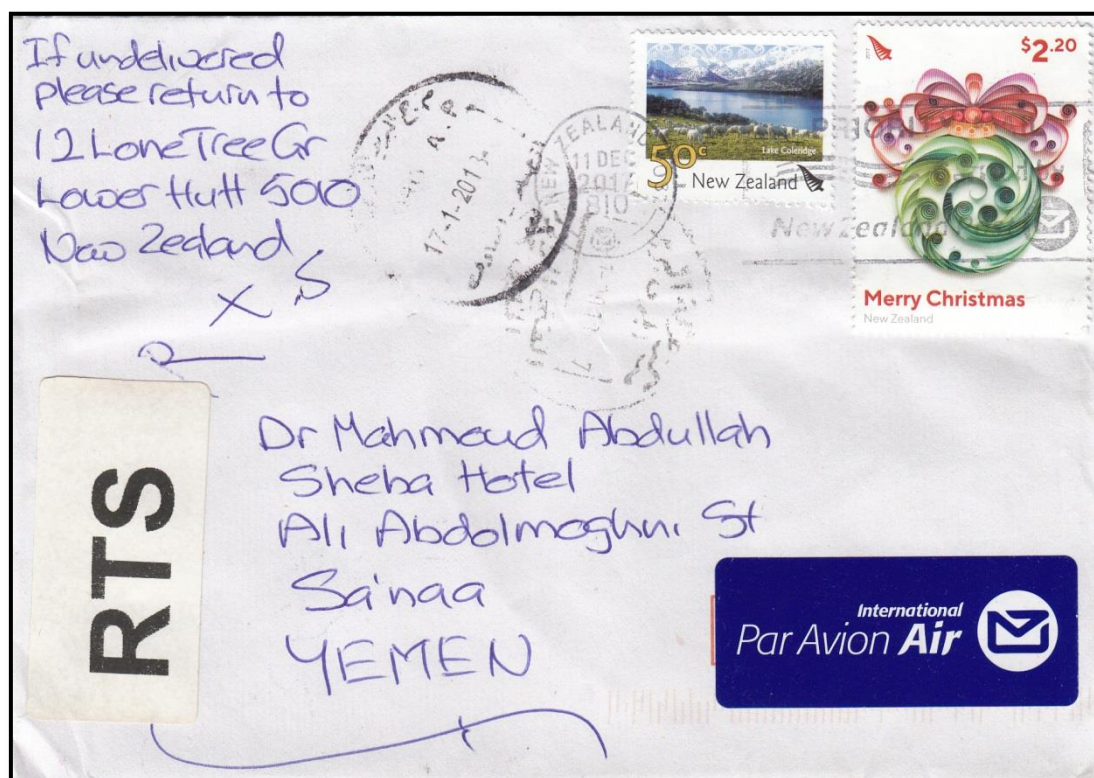 If undelivered
please return to
12 Lone Tree Gr
Lower Hutt 5010
New Zealand
17-1-2013
NEW ZEALAND
11 DEC
2017
810
50c
Lake Coleridge
New Zealand
$2.20
New Zealand
Merry Christmas
New Zealand
RTS
Dr Mahmoud Abdullah
Sheba Hotel
Ali Abdolmoghni St
Sa'naa
YEMEN
International
Par Avion Air